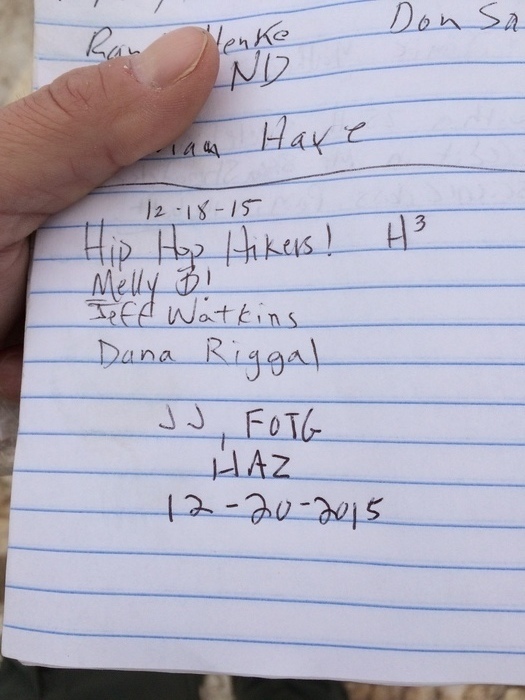 Henke Don Sa
ND
Haxe
12-18-15
Hip Hop Hikers! H³
Melly B!
Jeff Watkins
Dana Riggal
JJ, FOTG
HAZ
12-20-2015